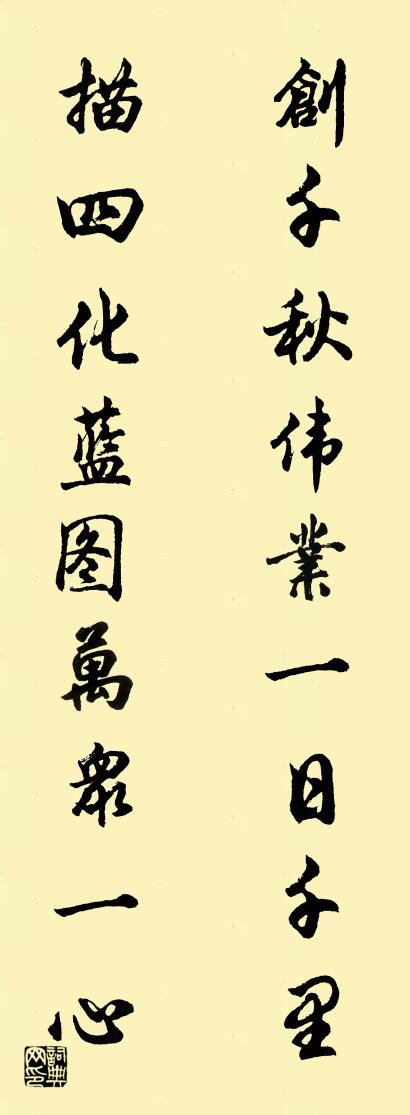 創千秋伟業一日千里
描四化蓝图萬衆一心
詞典網印